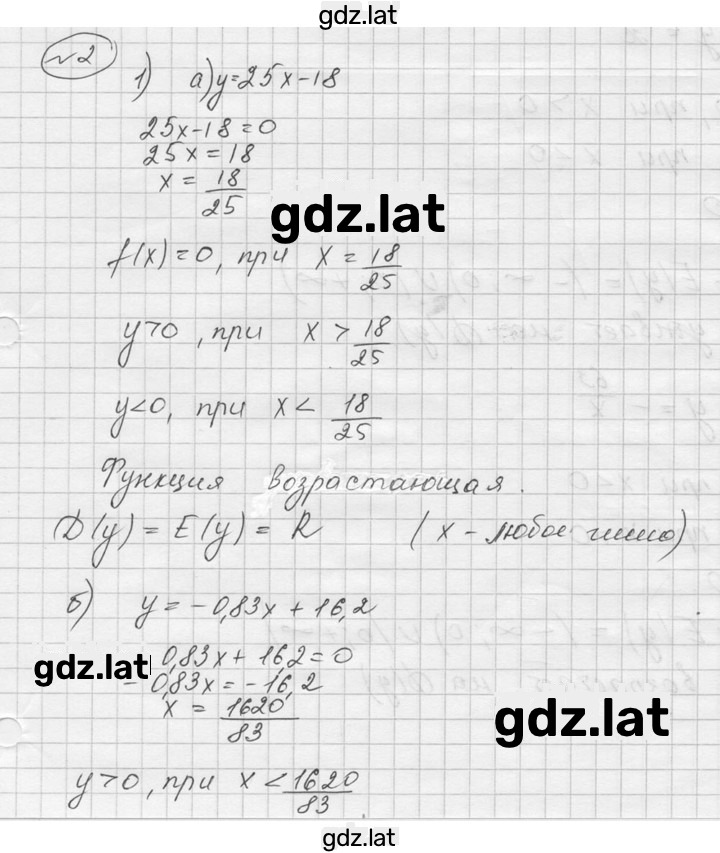 gdz.lat
№2
1) а) y=25x-18
25x-18=0
25x=18
x = 18/25
gdz.lat
f(x)=0, при x = 18/25
y>0, при x > 18/25
y<0, при x < 18/25
Функция возрастающая.
D(y) = E(y) = R (x - любое число)
б) y = -0,83x + 16,2
gdz.lat 0,83x + 16,2 = 0
-0,83x = -16,2
x = 1620/83
gdz.lat
y>0, при x < 1620/83
gdz.lat